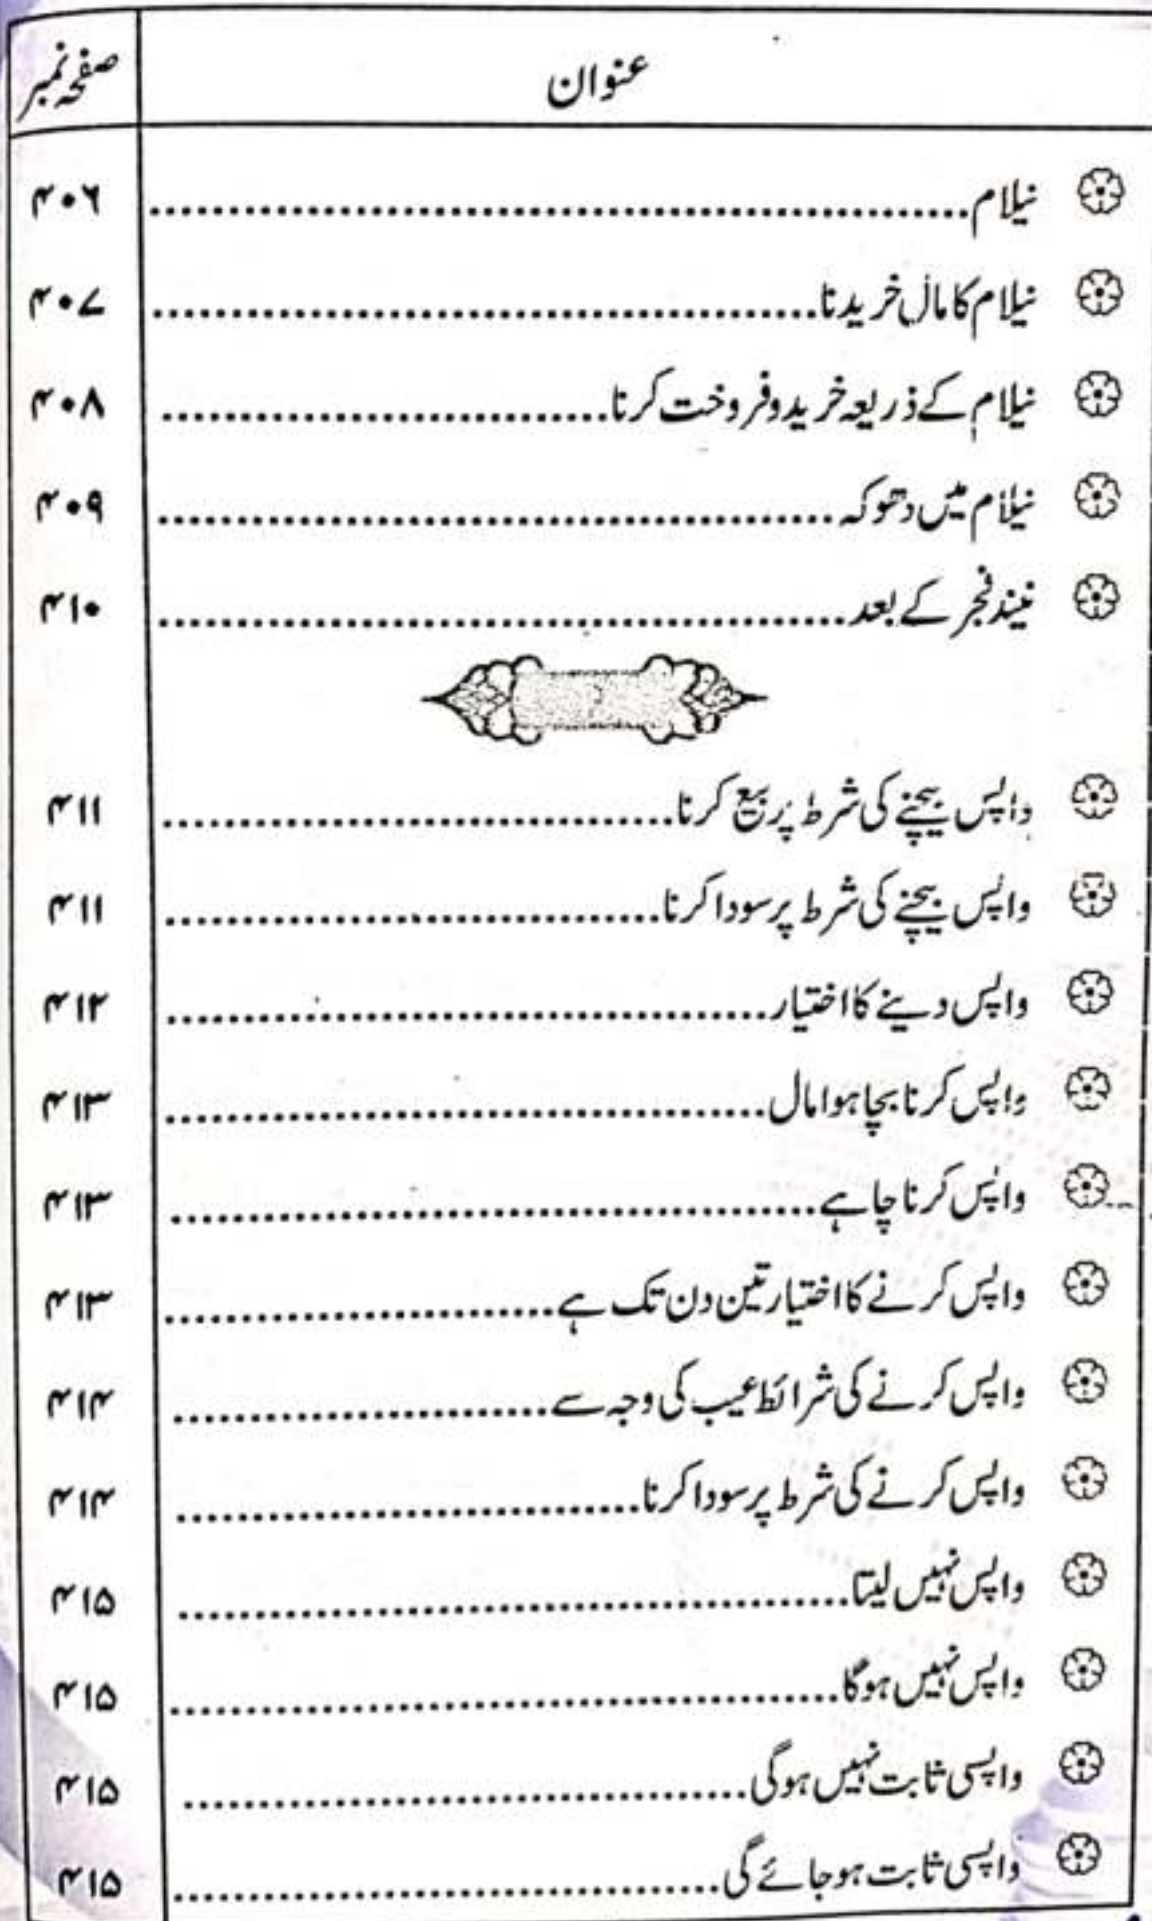 عنوان صفحہ نمبر
نیلام ۴۰۶
نیلام کا مال خریدنا ۴۰۷
نیلام کے ذریعہ خرید وفروخت کرنا ۴۰۸
نیلام میں دھوکہ ۴۰۹
نیند فجر کے بعد ۴۱۰
واپس بیچنے کی شرط پر بیع کرنا ۴۱۱
واپس بیچنے کی شرط پر سودا کرنا ۴۱۱
واپس دینے کا اختیار ۴۱۲
واپس کرنا بچا ہوا مال ۴۱۳
واپس کرنا چاہے ۴۱۳
واپس کرنے کا اختیار تین دن تک ہے ۴۱۳
واپس کرنے کی شرائط عیب کی وجہ سے ۴۱۴
واپس کرنے کی شرط پر سودا کرنا ۴۱۴
واپس نہیں لیتا ۴۱۵
واپس نہیں ہوگا ۴۱۵
واپسی ثابت نہیں ہوگی ۴۱۵
واپسی ثابت ہوجائے گی ۴۱۵